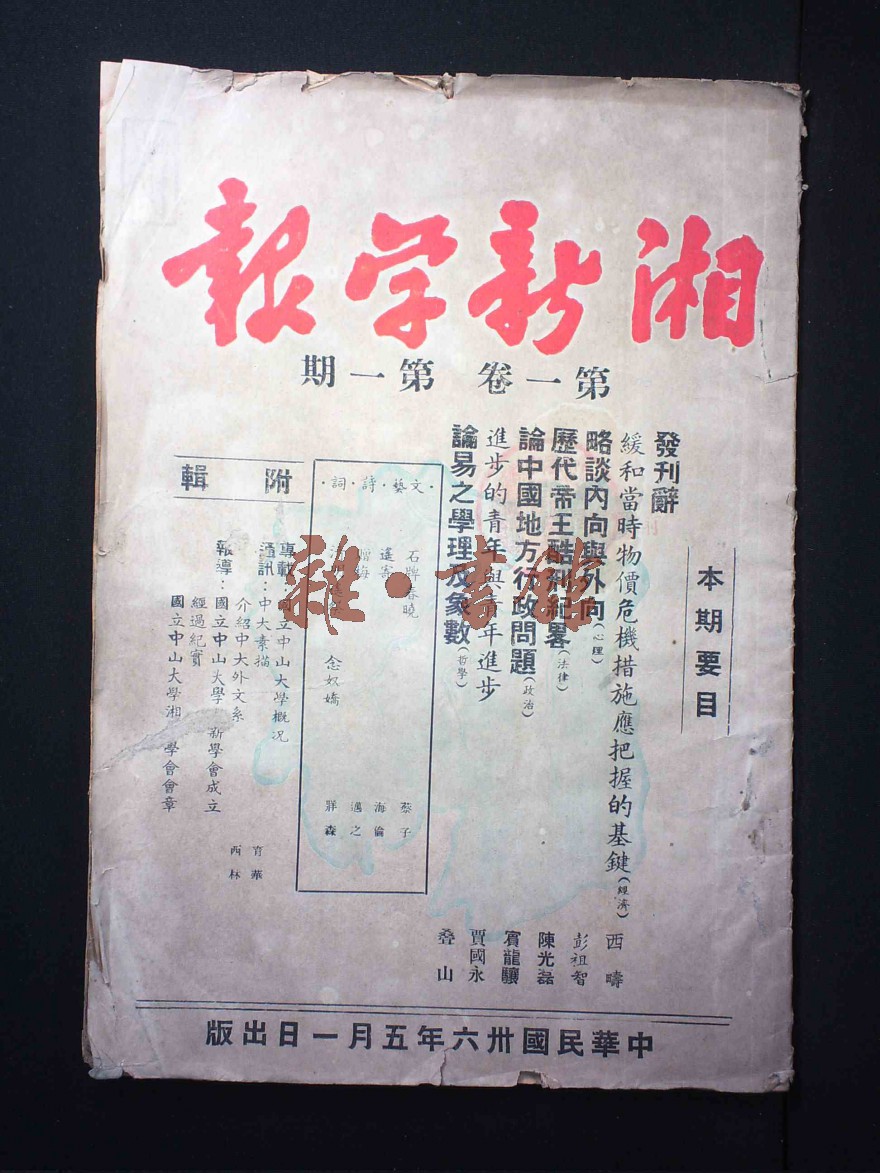 湘新学報
第一卷 第一期
本期要目
發刊辭
緩和當時物價危機措施應把握的基鍵(經濟) 西疇
略談內向與外向(心理) 彭祖智
歷代帝王酷刑紀畧(法律) 陳光磊
論中國地方行政問題(政治) 賓龍驤
進步的青年與青年進步 賈國永
論易之學理及象數(哲學) 叠山
·文·藝·詩·詞·
石牌春曉 蔡子
遙寄 海倫
梅 邁之
念奴嬌 牂森
附輯
專載：國立中山大學概况
通訊：中大素描 育華
介紹中大外文系 西林
報導：國立中山大學 新學會成立
經過紀實
國立中山大學湘 學會會章
中華民國卅六年五月一日出版
雜·書館